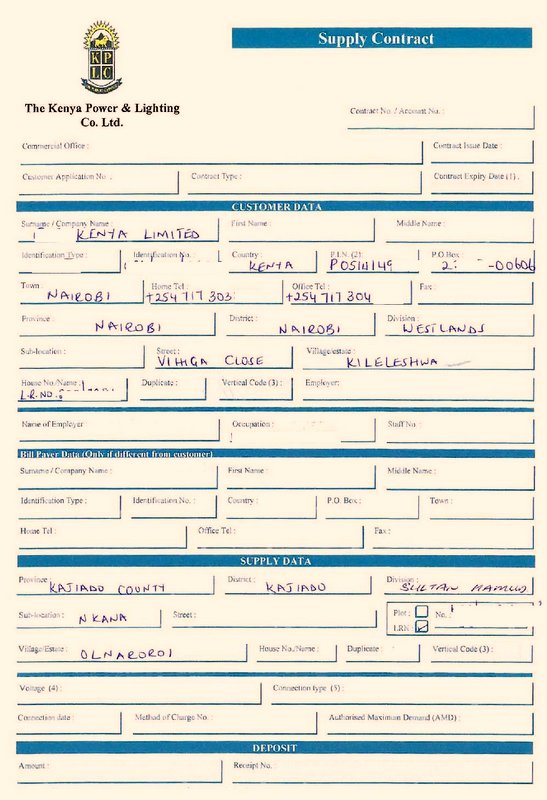 Supply Contract
KPLC
The Kenya Power & Lighting
Co. Ltd.
Contract No. / Account No. :
Commercial Office : Contract Issue Date :
Customer Application No. : Contract Type : Contract Expiry Date (1) :
CUSTOMER DATA
Surname / Company Name : First Name : Middle Name :
KENYA LIMITED
Identification Type : Identification No. : Country : P.I.N. (2): P.O.Box :
KENYA P0511149 2: -00606
Town : Home Tel : Office Tel : Fax :
NAIROBI +254 717 303 +254 717 304
Province : District : Division :
NAIROBI NAIROBI WESTLANDS
Sub-location : Street : Village/estate :
VIHIGA CLOSE KILELESHWA
House No./Name : Duplicate : Vertical Code (3) : Employer:
L.R.NO.
Name of Employer Occupation : Staff No. :
Bill Payer Data (Only if different from customer)
Surname / Company Name : First Name : Middle Name :
Identification Type : Identification No. : Country : P.O. Box : Town :
Home Tel : Office Tel : Fax :
SUPPLY DATA
Province : District : Division :
KAJIADO COUNTY KAJIADO SULTAN HAMUD
Sub-location : Street : Plot : No. :
NKANA LRK :
Village/Estate : House No./Name : Duplicate : Vertical Code (3) :
OLNAROROI
Voltage (4) : Connection type (5) :
Connection date : Method of Charge No. : Authorised Maximum Demand (AMD) :
DEPOSIT
Amount : Receipt No. :